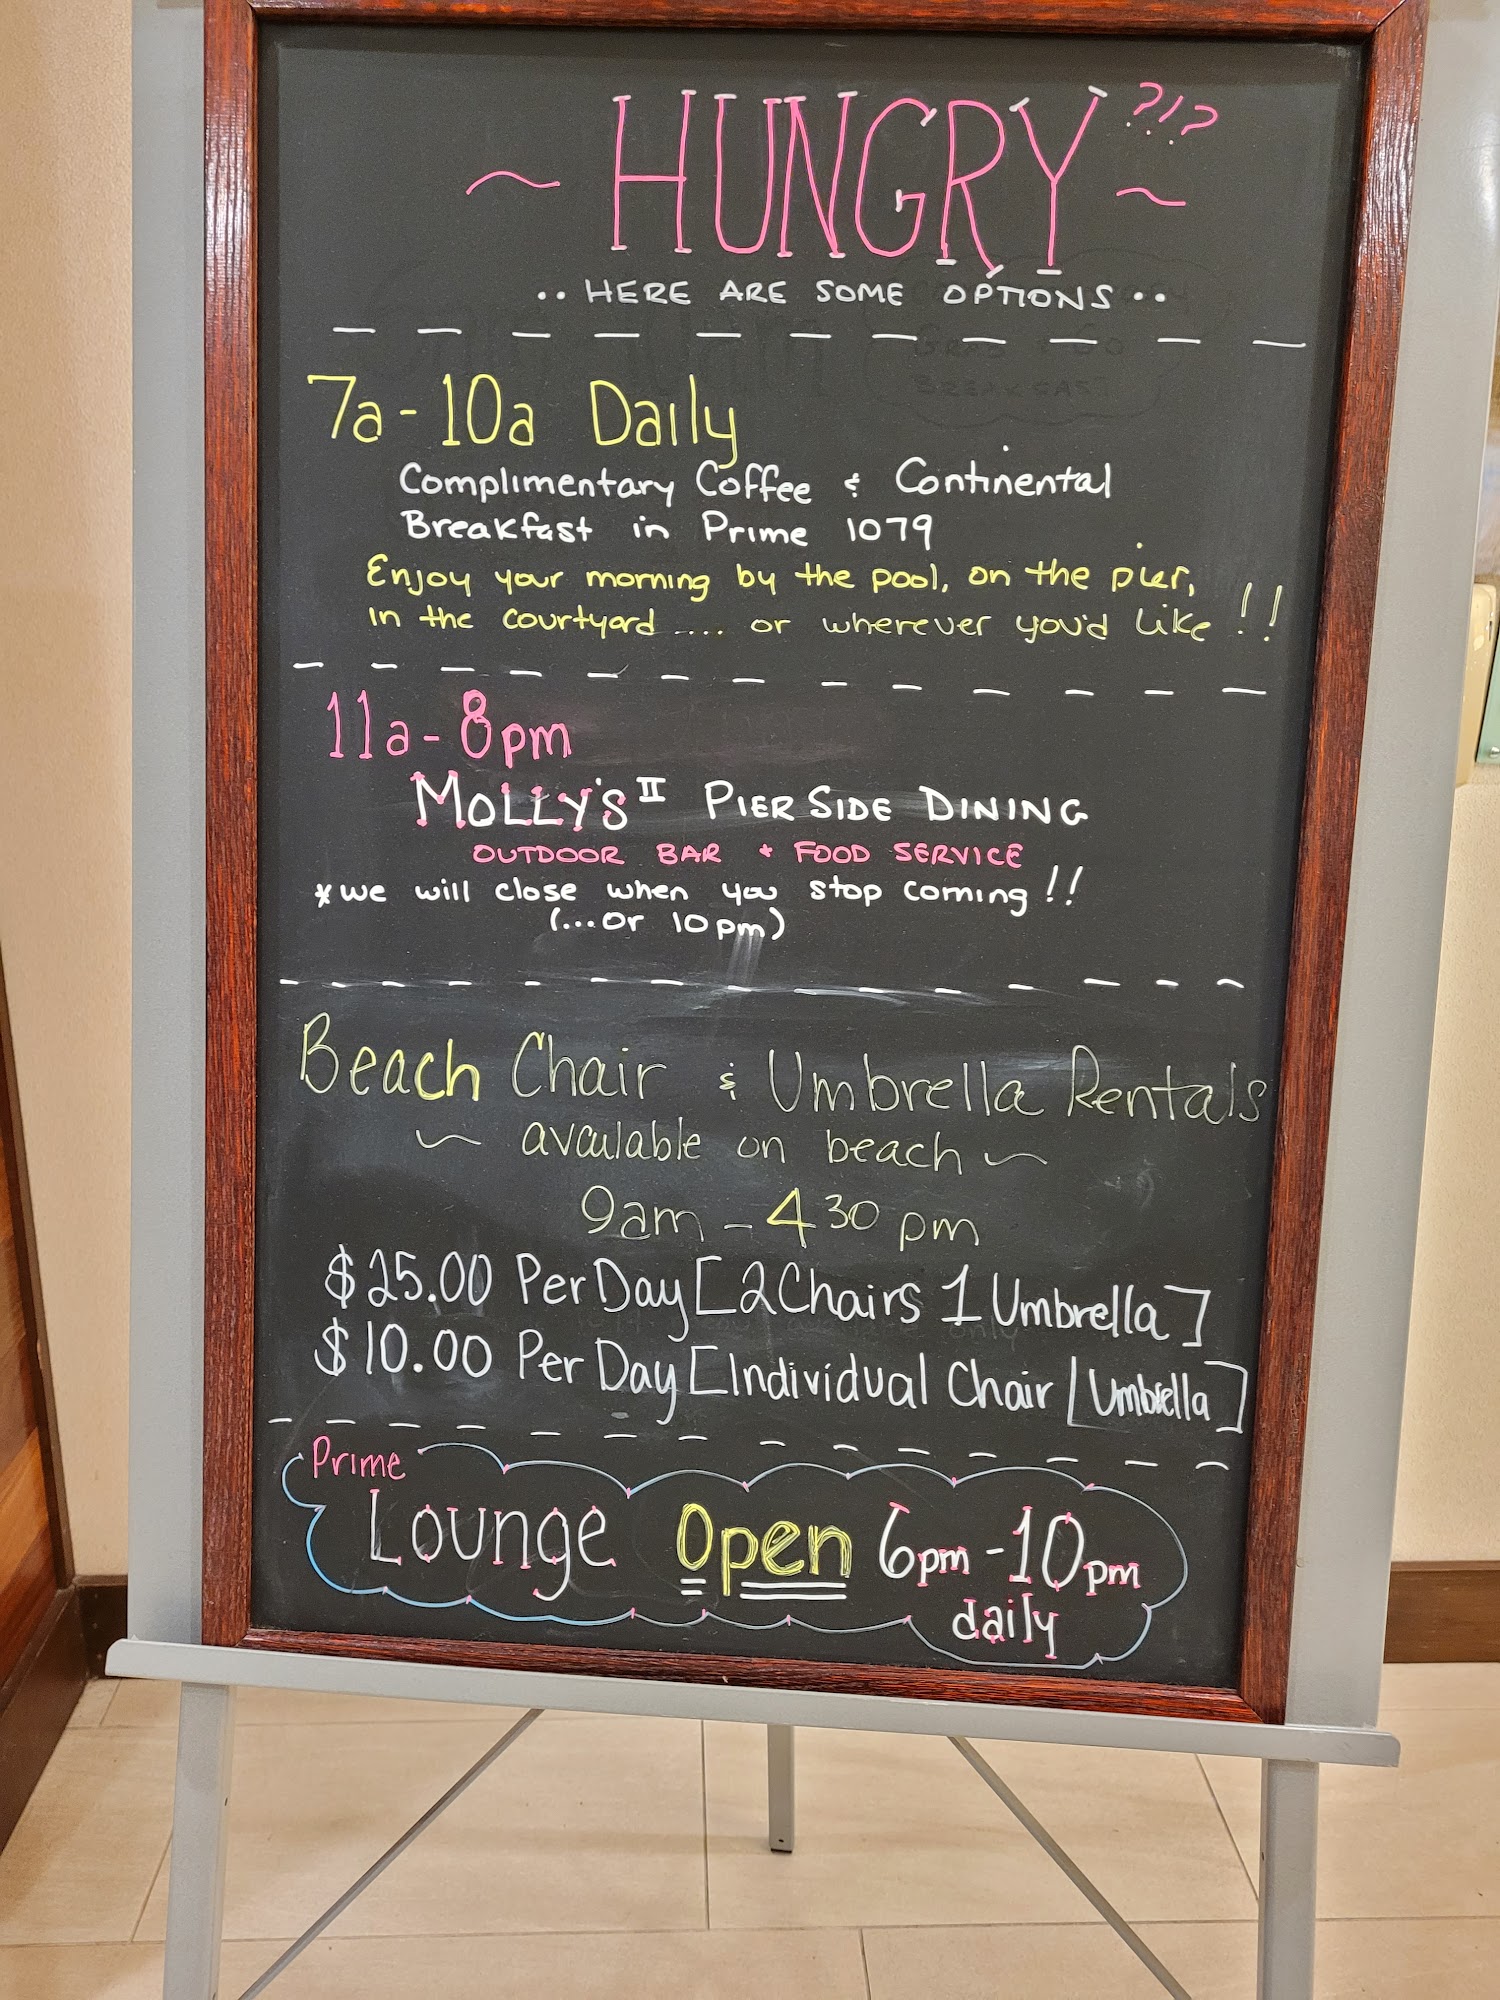 HUNGRY ?!?
.. HERE ARE SOME OPTIONS ..
7a - 10a Daily
Complimentary Coffee & Continental
Breakfast in Prime 1079
Enjoy your morning by the pool, on the pier,
in the courtyard .... or wherever you'd like !!
11a - 8pm
MOLLY'S II PIER SIDE DINING
OUTDOOR BAR + FOOD SERVICE
*we will close when you stop coming !!
(...or 10pm)
Beach Chair & Umbrella Rentals
~ available on beach ~
9am - 430 pm
$25.00 Per Day [2 Chairs 1 Umbrella]
$10.00 Per Day [Individual Chair | Umbrella]
Prime
Lounge Open 6pm - 10pm
daily